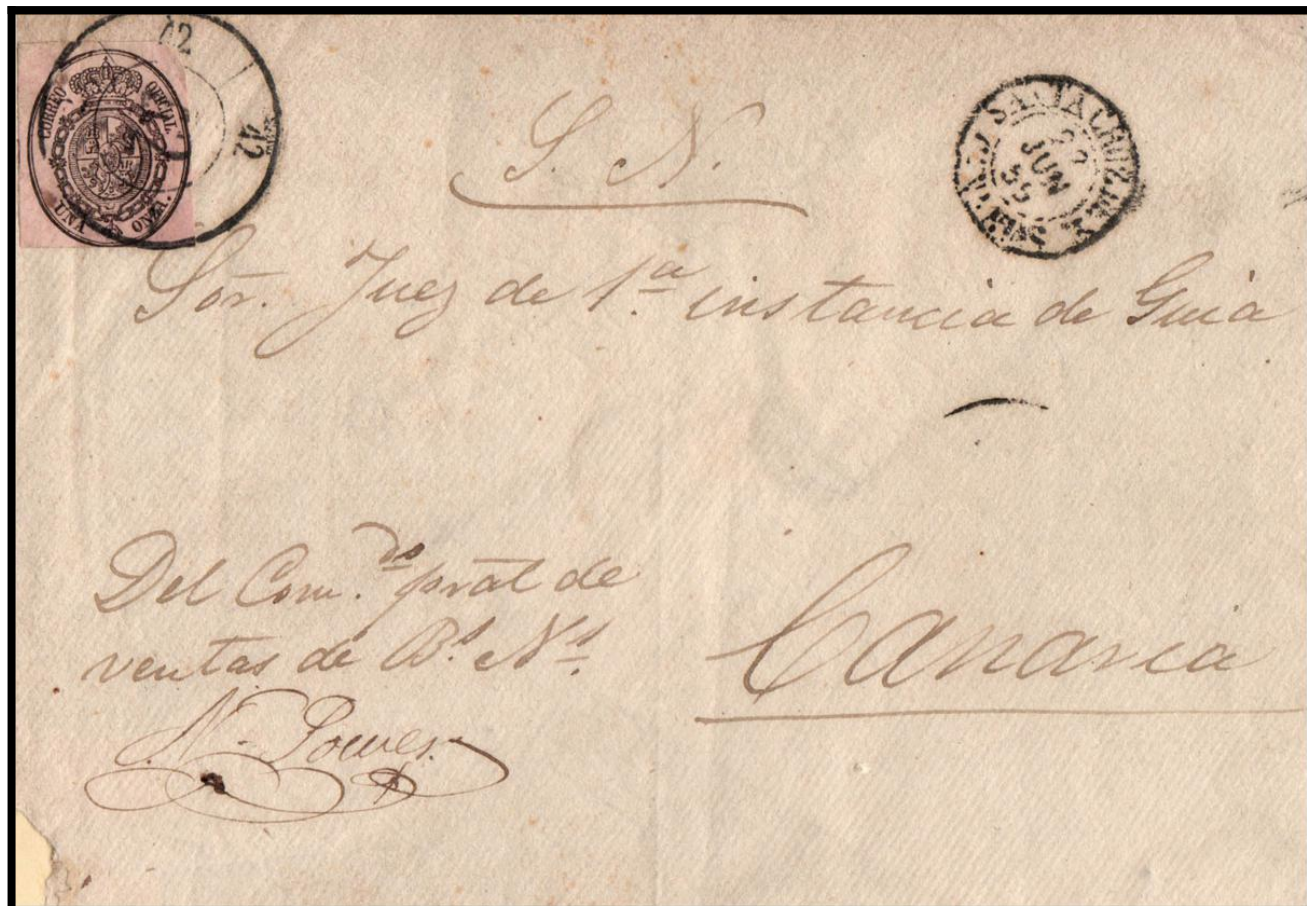 CORREO OFICIAL
UNA ONZA.
42
42
S. N.
SANTA CRUZ DE
JUN
Sor. Juez de 1.ª instancia de Guia
Del Com.do pral de
ventas de B.s N.s
N. Power
Canaria